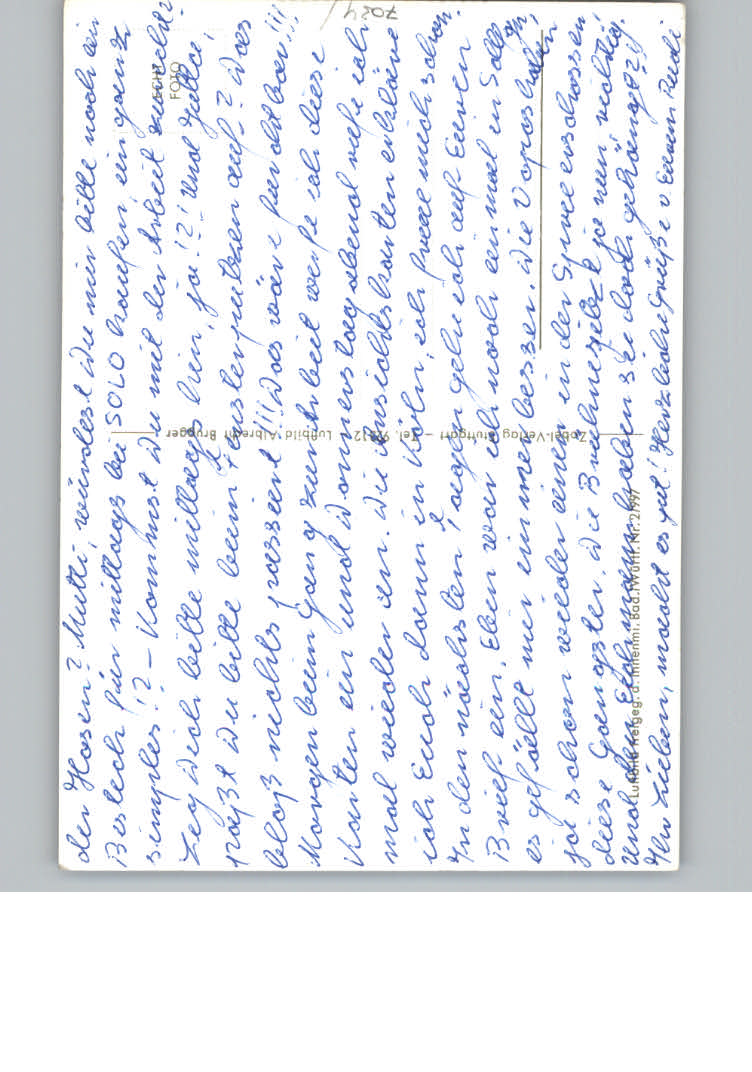 der Hosen? Mutti, würdest Du mir bitte noch ein
Besteck für mittags bei SOLO kaufen, ein ganz
simples!? – Kommst Du mit der Arbeit zurecht?
Leg Dich bitte mittags hin, ja!? Und Jutta,
paßt Du bitte beim Fensterputzen auf? Das
bloß nichts passiert!!! Das wäre furchtbar!!!
Morgen beim Gang zur Arbeit werfe ich diese
Karten ein und Donnerstag abend rufe ich
mal wieder an. Die Ansichtskarten erkläre
ich Euch dann in Köln, ich freue mich schon.
In den nächsten Tagen gehe ich auf Euren
Brief ein. Eben war ich noch einmal in
es gefällt mir immer besser. Die Vopos haben
ja schon wieder einen in der Spree erschossen
diese Gangster. Die
und den Eichmann haben sie doch gehängt?!
Ihr Lieben, macht es gut! Herzliche Grüße v. Eurem Rudi
7024/
ECHT
FOTO
Zobel-Verlag Stuttgart – Tel. – Luftbild Albrecht Brugger
Luftbild freigeg. d. Innenmi. Bad./Württ. Nr. 2/997